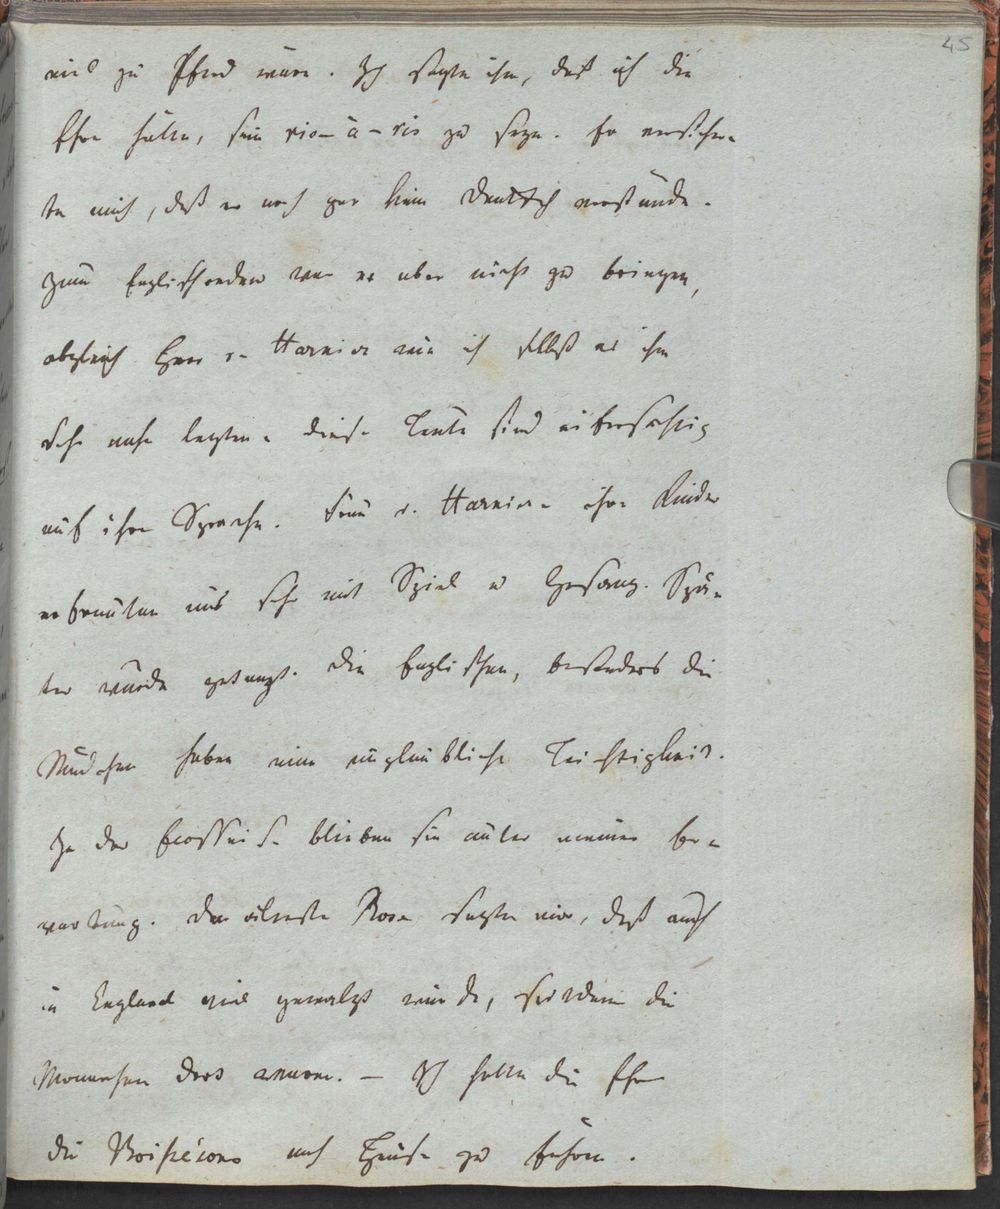 45
viel zu Pferd wären. Ich sagte ihm, daß ich die
Ehre hätte, sein vis-à-vis zu seyn. Er versicher-
te mich, daß er noch gar kein Deutsch verstünde.
Zum Englischreden war er aber nicht zu bringen,
obgleich Herr v. Harnier wie ich selbst es ihm
sehr nahe legten. diese Leute sind eifersüchtig
auf ihre Sprache. Frau v. Harnier ihre Kinder
erfreuten uns sehr mit Spiel u Gesang. Spä-
ter wurde getanzt. Die Englischen, besonders die
Mädchen haben eine unglaubliche Leichtigkeit.
In der Ecossaise blieben sie unter meiner Er-
wartung. Der älteste Rose sagte mir, daß auch
in England viel gewalzt würde, seitdem die
Monarchen dort waren. – Ich hatte die Ehre
die Boisserées nach Hause zu führen.